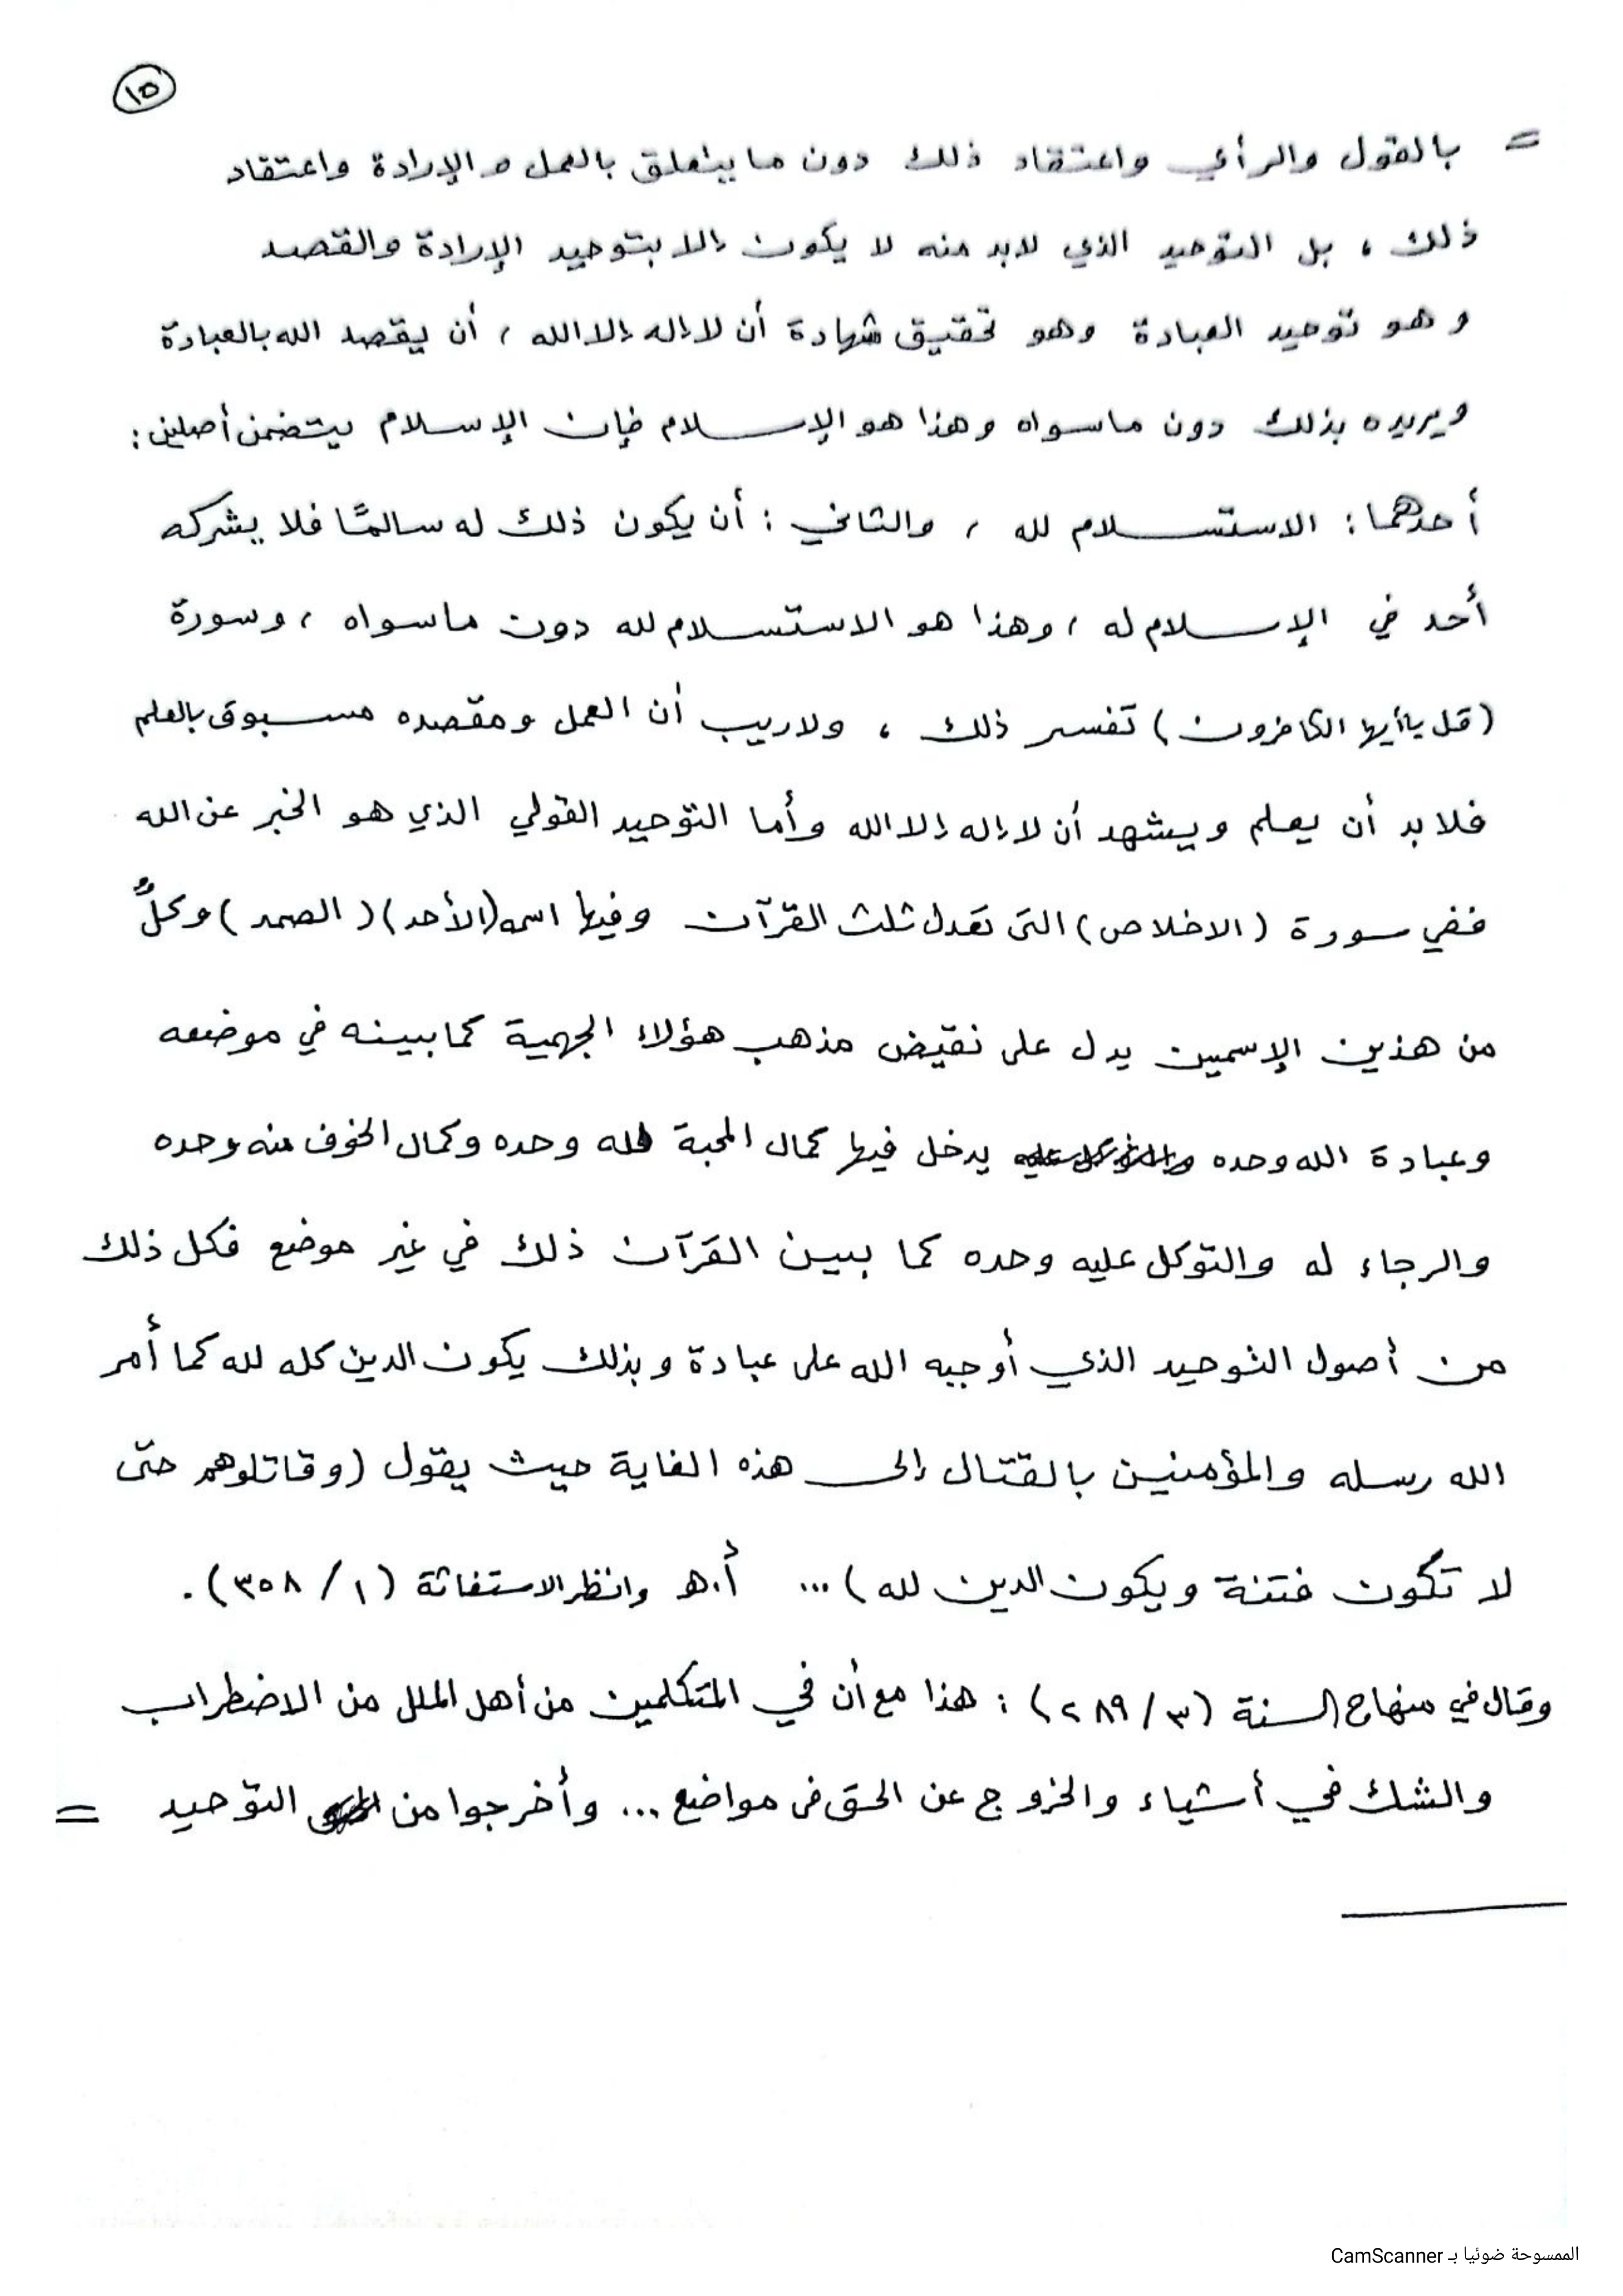 ١٥
= بالقول والرأي واعتقاد ذلك دون ما يتعلق بالعمل والإرادة واعتقاد
ذلك ، بل التوحيد الذي لابد منه لا يكون إلا بتوحيد الإرادة والقصد
وهو توحيد العبادة وهو تحقيق شهادة أن لا إله إلا الله ، أن يقصد الله بالعبادة
ويريده بذلك دون ما سواه وهذا هو الإسلام فإن الإسلام يتضمن أصلين :
أحدهما : الاستسلام لله ، والثاني : أن يكون ذلك له سالمًا فلا يشركه
أحد في الإسلام له ، وهذا هو الاستسلام لله دون ما سواه ، وسورة
(قل يا أيها الكافرون) تفسر ذلك ، ولا ريب أن العمل ومقصده مسبوق بالعلم
فلا بد أن يعلم ويشهد أن لا إله إلا الله وأما التوحيد القولي الذي هو الخبر عن الله
ففي سورة (الاخلاص) التى تعدل ثلث القرآن وفيها اسمه (الأحد) (الصمد) وكلٌّ
من هذين الإسمين يدل على نقيض مذهب هؤلاء الجهمية كما بينه في موضعه
وعبادة الله وحده يدخل فيها كمال المحبة لله وحده وكمال الخوف منه وحده
والرجاء له والتوكل عليه وحده كما يبين القرآن ذلك في غير موضع فكل ذلك
من أصول التوحيد الذي أوجبه الله على عبادة وبذلك يكون الدين كله لله كما أمر
الله رسله والمؤمنين بالقتال إلى هذه الغاية حيث يقول (وقاتلوهم حتى
لا تكون فتنة ويكون الدين لله) ... أ.هـ وانظر الاستغاثة (١/ ٣٥٨) .
وقال في منهاج السنة (٣/ ٢٨٩) : هذا مع أن في المتكلمين من أهل الملل من الاضطراب
والشك في أشياء والخروج عن الحق فى مواضع ... وأخرجوا من التوحيد =
الممسوحة ضوئيا بـ CamScanner